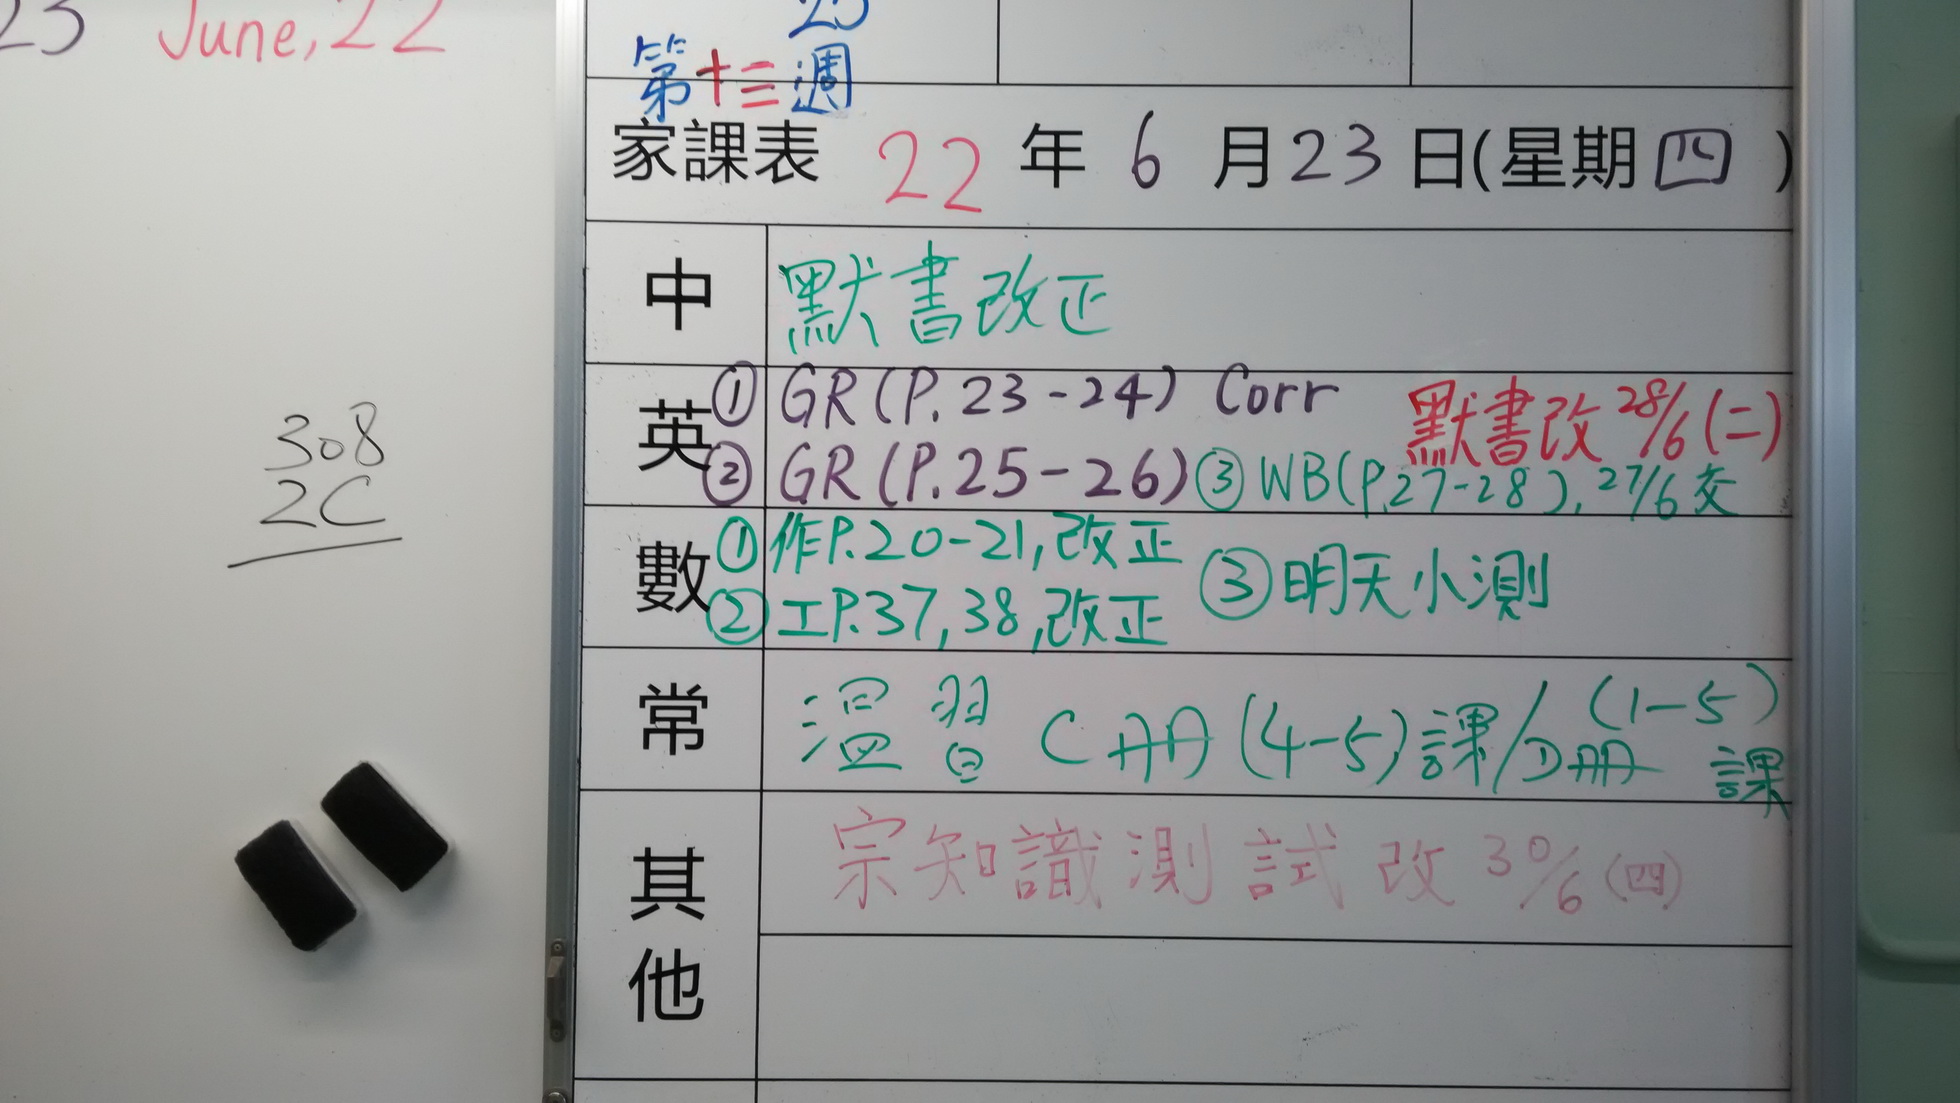 23 June, 22
308
2C
23
第十三週
家課表 22 年 6 月 23 日(星期四)
中 默書改正
英 ① GR (P. 23-24) Corr 默書改 28/6 (二)
② GR (P. 25-26) ③ WB (P.27-28), 27/6 交
數 ① 作P.20-21, 改正 ③ 明天小測
② 工P.37, 38, 改正
常 温習 C 冊 (4-5) 課/D冊 (1-5) 課
其他 宗知識測試改 30/6 (四)